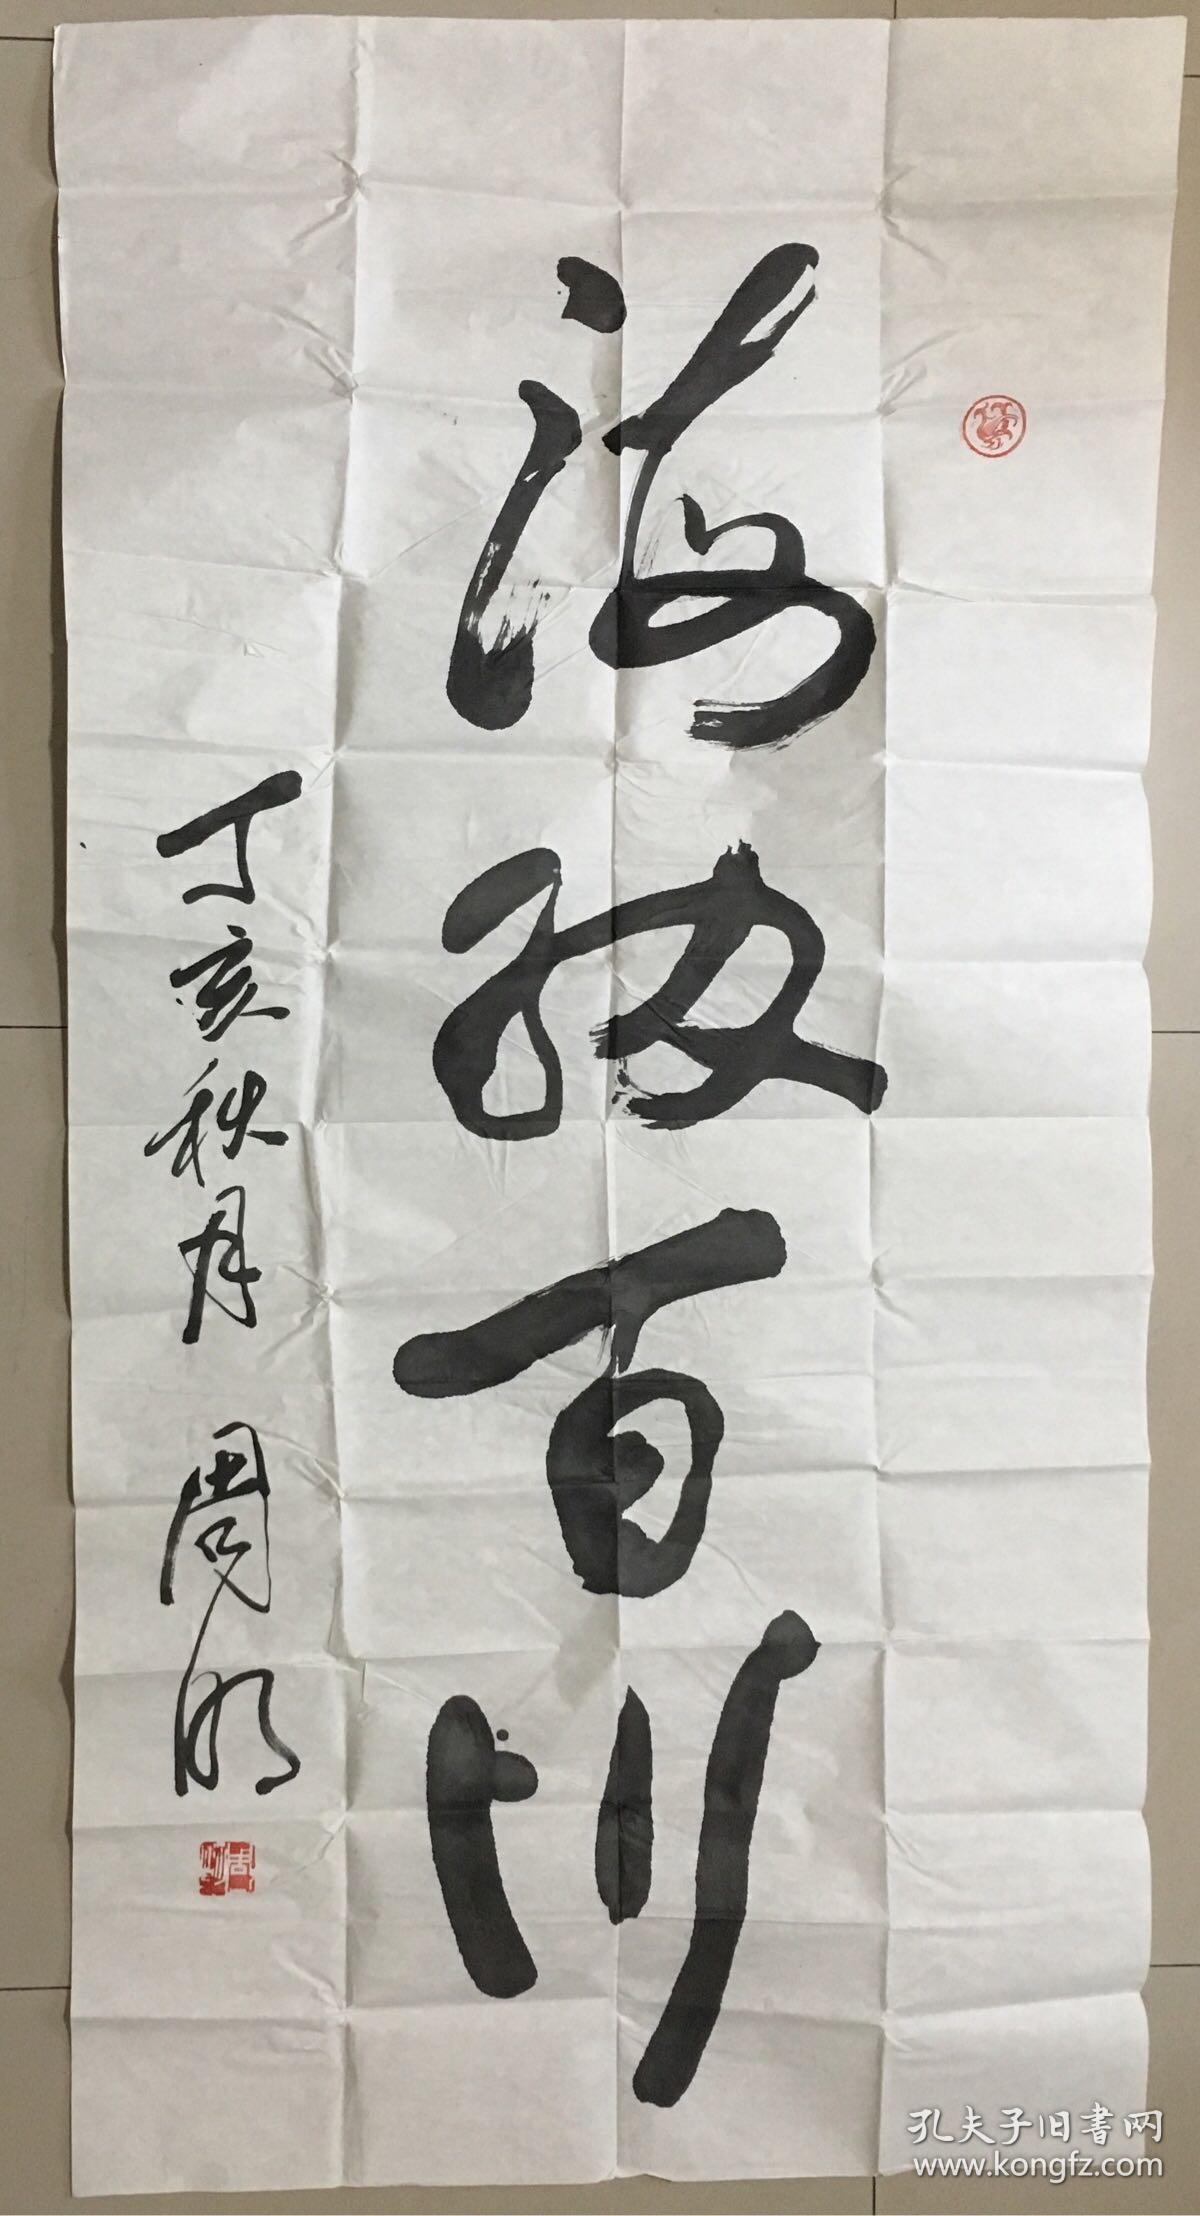 海纳百川
丁亥秋月 周明
孔夫子旧書网
www.kongfz.com